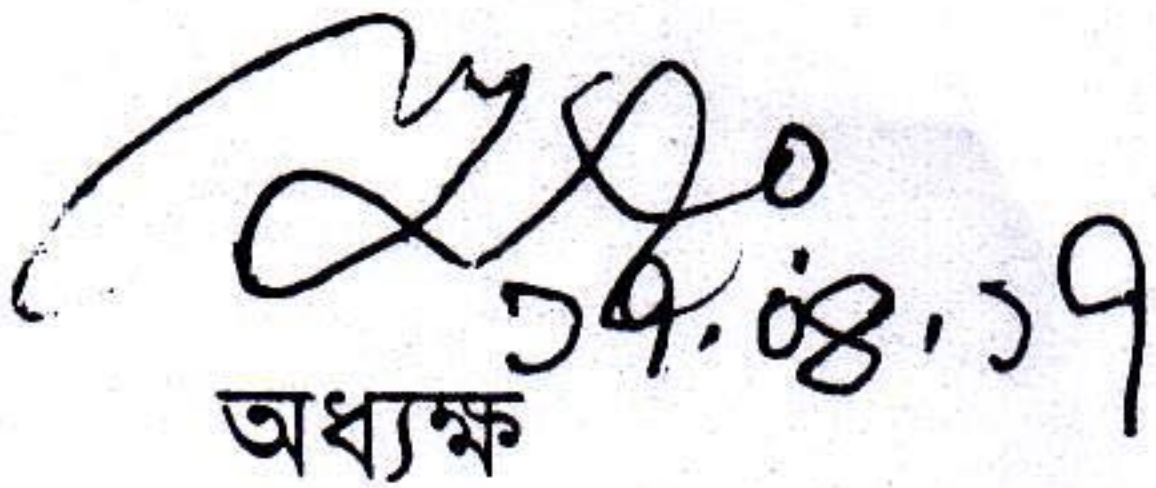 ১৭.০৪.১৭
অধ্যক্ষ